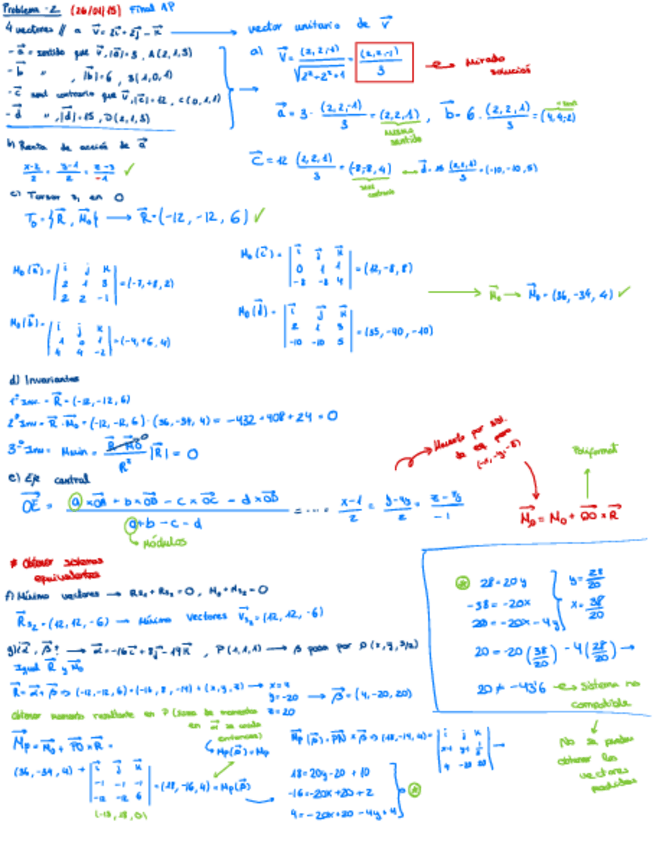 Problema-2 (26/01/15) Final AP
4 vectores // a v⃗ = 2i⃗ + 2j⃗ - k⃗ → vector unitario de v⃗
- a⃗ = sentido que v⃗, |a|=3, A(2,1,3)
- b⃗ " , |b|=6, B(1,0,1)
- c⃗ sent contrario que v⃗, |c|=12, C(0,1,1)
- d⃗ " , |d|=15, D(2,1,3)
a) v⃗ = (2,2,-1) / √(2²+2²+1) = (2,2,-1) / 3 → Mirado solución
a⃗ = 3 · (2,2,-1)/3 = (2,2,1), b⃗ = 6 · (2,2,1)/3 = (4,4,-2)
mismo sentido
c⃗ = 12 (2,2,1)/3 = (-8,-8,4) ↔ d⃗ = 15 (2,2,1)/3 = (-10,-10,5)
sent contrario
b) Recta de acción de a⃗
x-2/2 = y-1/2 = z-3/-1 ✓
c) Torsor S, en O
T₀ = {R⃗, M⃗₀} → R⃗ = (-12, -12, 6) ✓
M₀(a⃗) = | i j k | 2 1 3 | 2 2 -1 | = (-7, +8, 2)
M₀(c⃗) = | i⃗ j⃗ k⃗ | 0 1 1 | -8 -8 4 | = (12, -8, 8)
M₀(b⃗) = | i j k | 1 0 1 | 4 4 -2 | = (-4, +6, 4)
M₀(d⃗) = | i⃗ j⃗ k⃗ | 2 1 3 | -10 -10 5 | = (35, -40, -10)
→ M⃗₀ → M⃗₀ = (36, -34, 4) ✓
d) Invariantes
1º Inv. = R⃗ = (-12, -12, 6)
2º Inv = R⃗ · M⃗₀ = (-12, -12, 6) · (36, -34, 4) = -432 + 408 + 24 = 0
3º Inv = Mmin = R⃗ · M⃗₀ / R² |R| = 0
e) Eje central
OE⃗ = a × OA + b × OB - c × OC - d × OD / a+b-c-d = ... = x-1/2 = = z- /-1
Módulos
Momento por
M⃗ = M₀ + × R⃗
Poliformat
* Obtener sistemas equivalentes
f) Mínimo vectores → = 0, = 0
R⃗s₂ = (12, 12, -6) → Mínimo Vectores v⃗s₂ = (12, 12, -6)
g) ¿α⃗, β⃗? → α⃗ = -16i⃗ + 8j⃗ - 14k⃗, P(1,1,1) → β pasa por
Igual R⃗ y M₀
R⃗ = α⃗ + β⃗ ⇒ (-12, -12, 6) = (-16, 8, -14) + (x, y, z) → x=4
y=-20 → β⃗ = (4, -20, 20)
z=20
Obtener momento resultante en P (suma de momentos en α⃗ se anula entonces)
Mp(β⃗) = Mp
M⃗p = M⃗₀ + PO⃗ × R⃗ =
(36, -34, 4) + | i⃗ j⃗ k⃗ | -1 -1 -1 | -12 -12 6 | = (18, -16, 4) = Mp(β⃗)
(-18, 18, 0)
18 = 20y - 20 + 10
-16 = -20x + 20 + 2
4 = -20x + 20 - 4y + 4
28 = 20y
-38 = -20x
20 = -20x - 4y
y = 28/20
x = 38/20
20 = -20 (38/20) - 4 (28/20) →
20 ≠ -43'6 → Sistema no compatible
No se pueden obtener los vectores